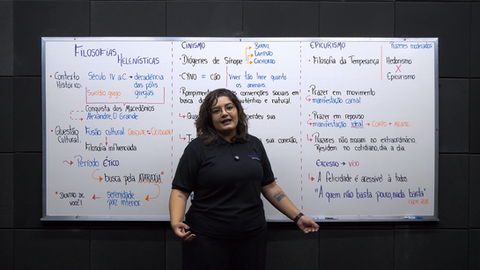 FILOSOFIAS
HELENÍSTICAS
• Contexto
Histórico
Século IV a.C → decadência
das pólis
gregas
Conquista dos Macedônios
Alexandre, O Grande
• Questão
Cultural
Fusão cultural
Filosofia influenciada
Período Ético
busca pela ATARAXIA
serenidade
paz interior
DENTRO DE
VOCÊ!
CINISMO
• Diógenes de Sínope
BARRIL
LAMPIÃO
CACHORRO
• CYNO = CÃO
Viver tão livre quanto
os animais.
Rompimento
convenções sociais em
busca de
autêntico e natural.
sua
sua conexão,
EPICURISMO
PRAZERES MODERADOS
• Filosofia da Temperança
Hedonismo
X
Epicurismo
• Prazer em movimento
manifestação carnal
• Prazer em repouso
manifestação ideal → CORPO + MENTE
• Prazeres não moram no extraordinário.
Residem no cotidiano, dia a dia.
EXCESSO → VÍCIO
A felicidade é acessível à todos.
"A quem não basta pouco, nada basta"